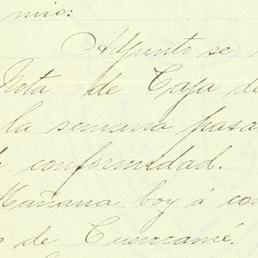 mio:
Adjunto se
Nota de Caja de
la semana pasa
conformidad.
Mañana boy á con
de Cuencamé.